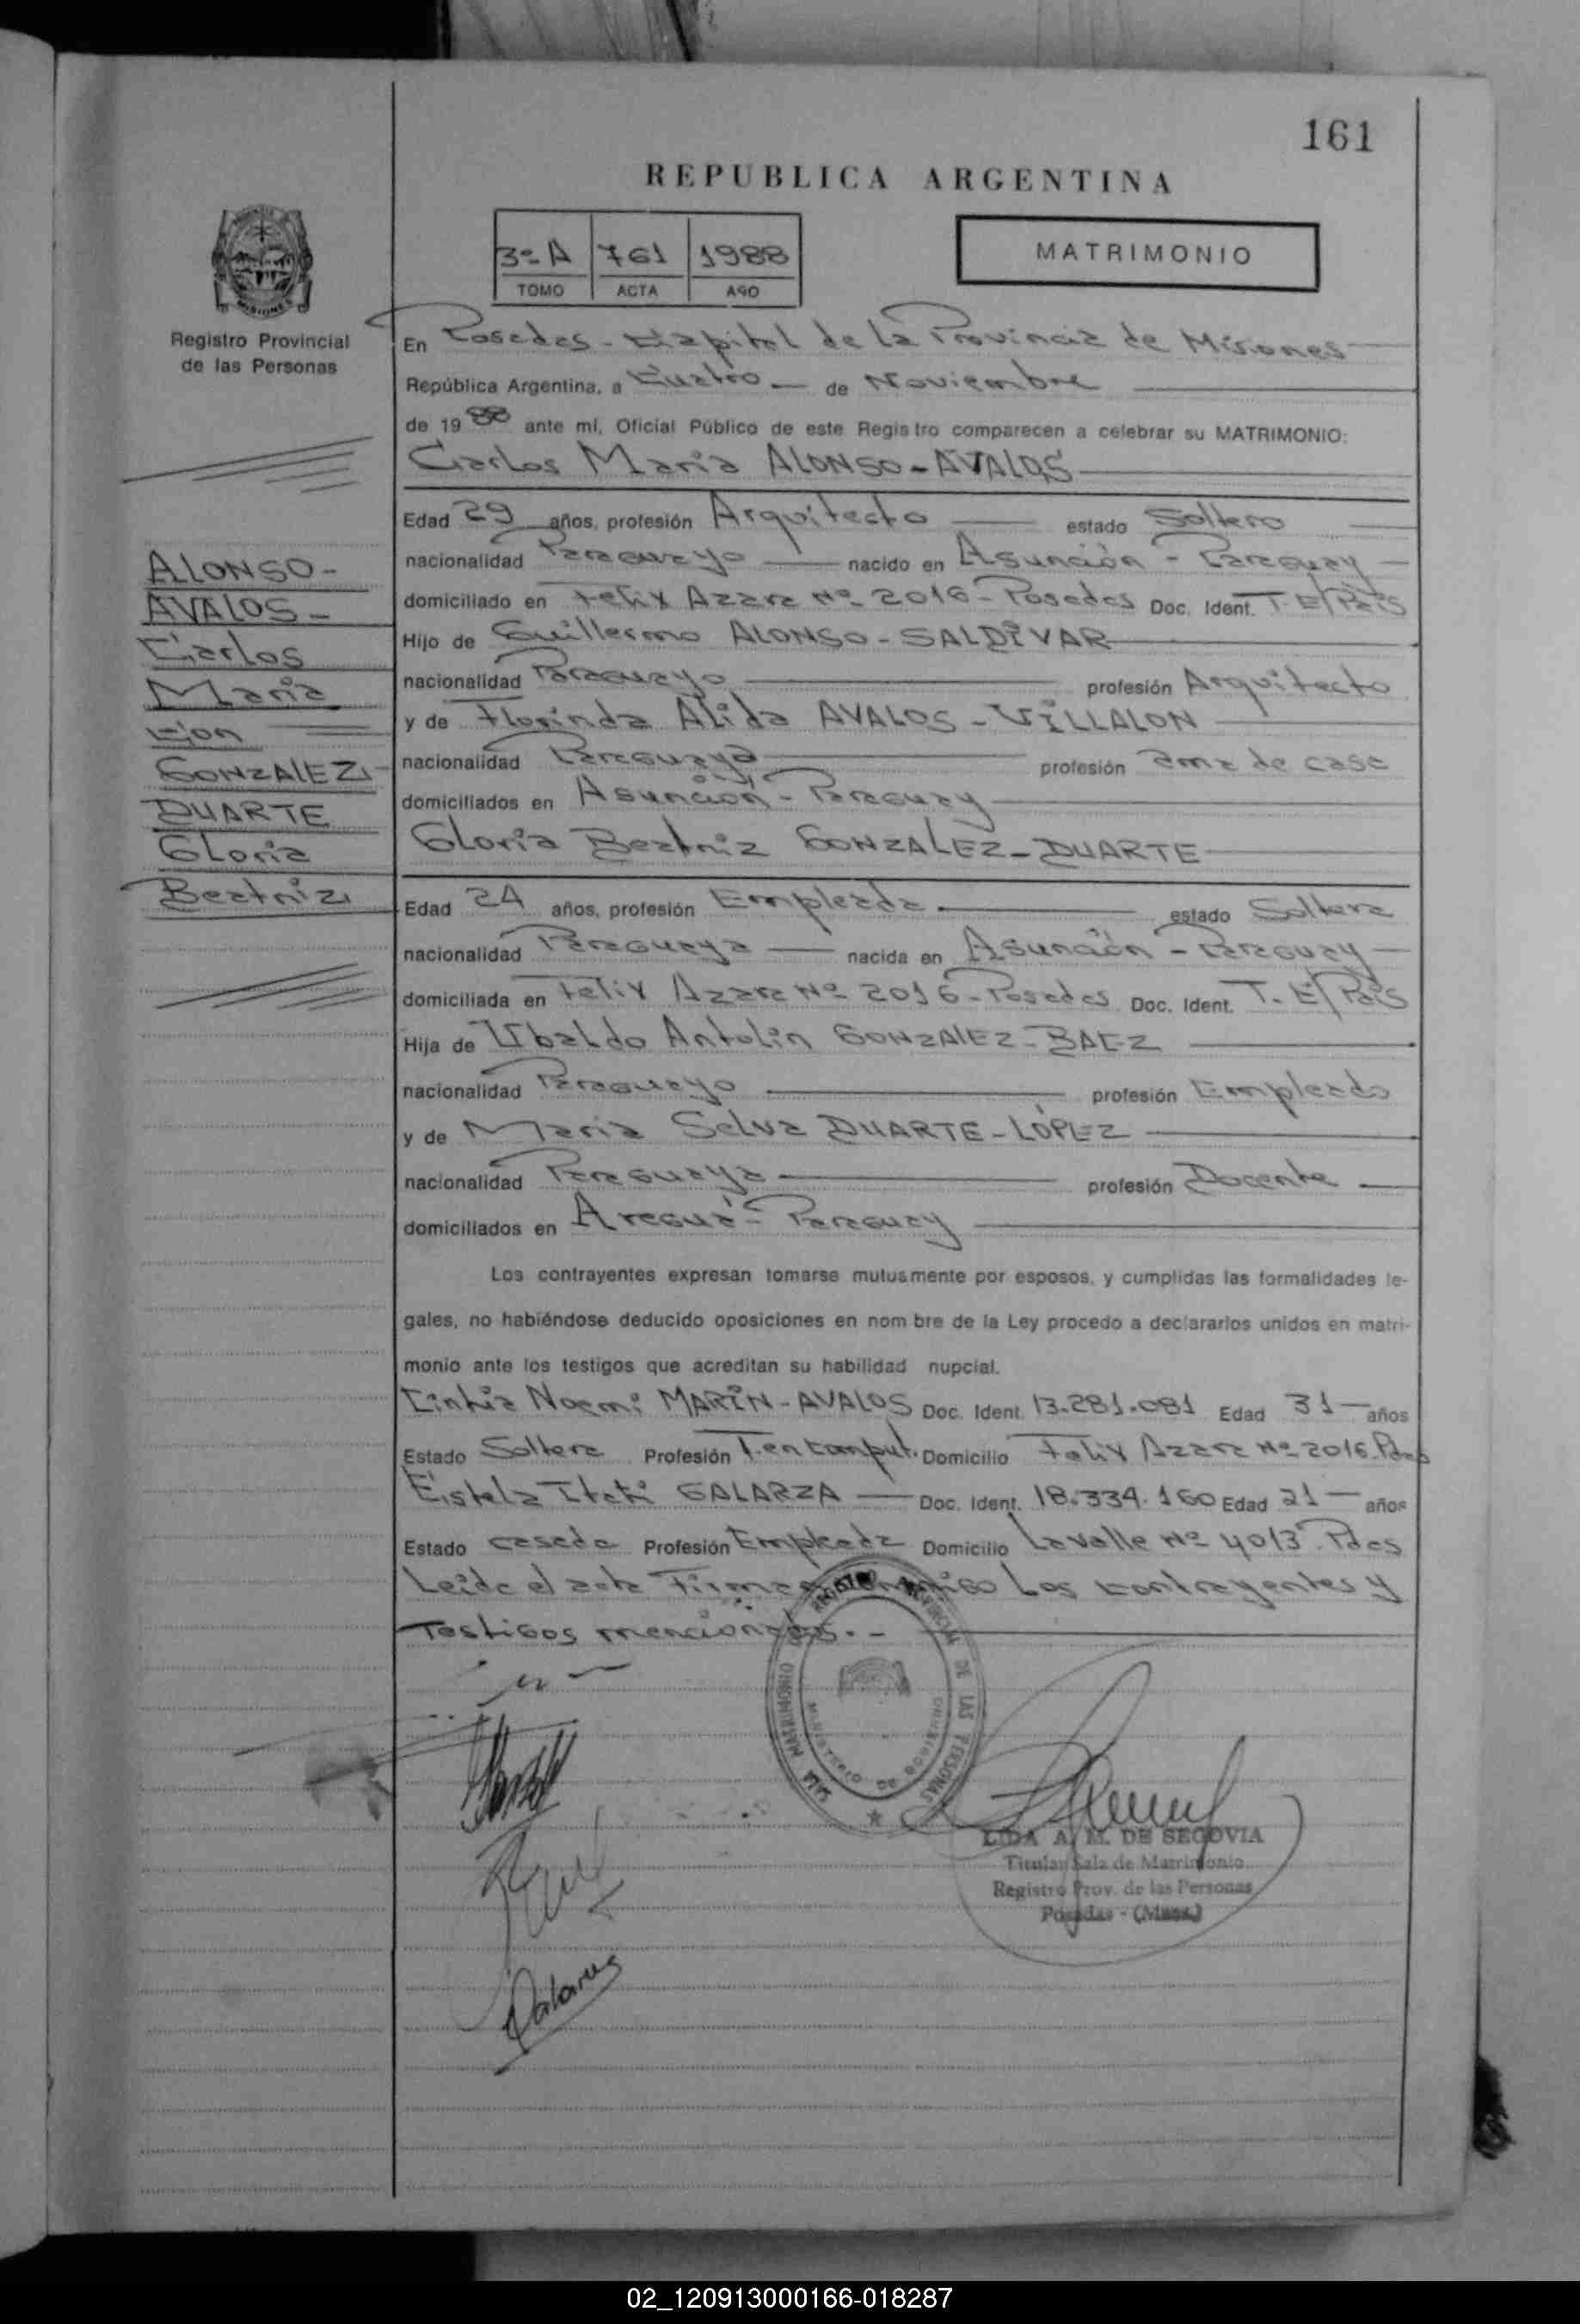 161
REPUBLICA ARGENTINA
3º A 761 1988
TOMO ACTA AÑO
MATRIMONIO
MISIONES
Registro Provincial
de las Personas
En Posadas - Capital de la Provincia de Misiones
República Argentina, a Cuatro de Noviembre
de 1988 ante mí, Oficial Público de este Registro comparecen a celebrar su MATRIMONIO:
Carlos Maria ALONSO - AVALOS
Edad 29 años, profesión Arquitecto estado Soltero
nacionalidad Paraguayo nacido en Asunción - Paraguay
domiciliado en Felix Azara Nº 2016 - Posadas Doc. Ident. T. E/País
Hijo de Guillermo ALONSO - SALDIVAR
nacionalidad Paraguayo profesión Arquitecto
y de Florinda Alida AVALOS - VILLALON
nacionalidad Paraguaya profesión ama de casa
domiciliados en Asunción - Paraguay
Gloria Beatriz GONZALEZ - DUARTE
Edad 24 años, profesión Empleada estado Soltera
nacionalidad Paraguaya nacida en Asunción - Paraguay
domiciliada en Felix Azara Nº 2016 - Posadas Doc. Ident. T. E/País
Hija de Ubaldo Antolin GONZALEZ - BAEZ
nacionalidad Paraguayo profesión Empleado
y de Maria Selva DUARTE - LÓPEZ
nacionalidad Paraguaya profesión Docente
domiciliados en Areguá - Paraguay
Los contrayentes expresan tomarse mutuamente por esposos, y cumplidas las formalidades le-
gales, no habiéndose deducido oposiciones en nom bre de la Ley procedo a declararlos unidos en matri-
monio ante los testigos que acreditan su habilidad nupcial.
Cintia Noemi MARIN - AVALOS Doc. Ident. 13.281.081 Edad 31 años
Estado Soltera Profesión T. en Comput. Domicilio Felix Azara Nº 2016. Pdas
Estela Itati GALARZA Doc. Ident. 18.334.160 Edad 21 años
Estado casada Profesión Empleada Domicilio Lavalle Nº 4013. Pdas
Leida el acta Firman conmigo Los contrayentes y
Testigos mencionados. -
ALONSO -
AVALOS -
Carlos
Maria
con
GONZALEZ
DUARTE
Gloria
Beatriz
REGISTRO PROVINCIAL DE LAS PERSONAS
SALA MATRIMONIO
MINISTERIO DE GOBIERNO
LIDA A. M. DE SEGOVIA
Titular Sala de Matrimonio
Registro Prov. de las Personas
Posadas - (Mnes.)
02_120913000166-018287